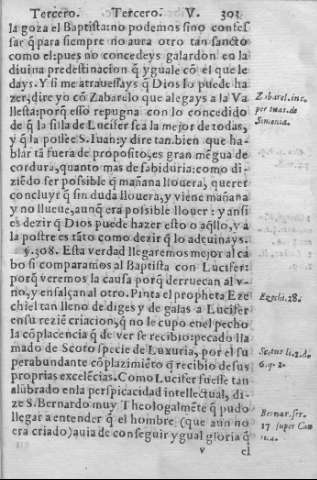 Tercero. Tercero. V. 303
la goza el Baptista: no podemos sino confes
sar q̃ para siempre no aura otro tan sancto
como el: pues no concedeys galardon en la
diuina predestinacion q̃ yguale cõ el que le
days. Y si me atrauessays q̃ Dios lo puede ha
zer, dire yo cõ Zabarelo que alegays a la Va
llesta: porq̃ esso repugna con lo concedido
de q̃ la silla de Lucifer sea la mejor de todas,
y q̃ la possee S. Iuan: y dire tan bien que ha-
blar tã fuera de proposito, es gran mẽgua de
cordura, quanto mas de sabiduria: como di-
zẽdo ser possible q̃ mañana llouera, querer
concluyr q̃ sin duda llouera, y viene mañana
y no llueue, aunq̃ era possible llouer: y ansi
es dezir q̃ Dios puede hazer esto o aq̃llo, y a
la postre es tãto como dezir q̃ lo adeuinays.
§. 308. Esta verdad llegaremos mejor al ca
bo si comparamos al Baptista con Lucifer:
porq̃ veremos la causa porq̃ derruecan al v-
no, y ensalçan al otro. Pinta el propheta Eze
chiel tan lleno de diges y de galas a Lucifer
en su reziẽ criacion, q̃ no le cupo en el pecho
la cõplacencia q̃ de ver se recibio: pecado lla
mado de Scoto specie de Luxuria, por el su
perabundante cõplazimiẽto q̃ recibio de sus
proprias excelẽcias. Como Lucifer fuesse tan
alũbrado en la perspicacidad intellectual, di-
ze S. Bernardo muy Theologalmẽte q̃ pudo
llegar a entender q̃ el hombre (que aun no
era criado) auia de conseguir ygual gloria q̃
v el
Zabarel. in c.
per tuas. de
Simonia.
Ezech. 28.
Scotus li. 2. d.
6. q. 2.
Bernar. ser.
17 super Can
tica.